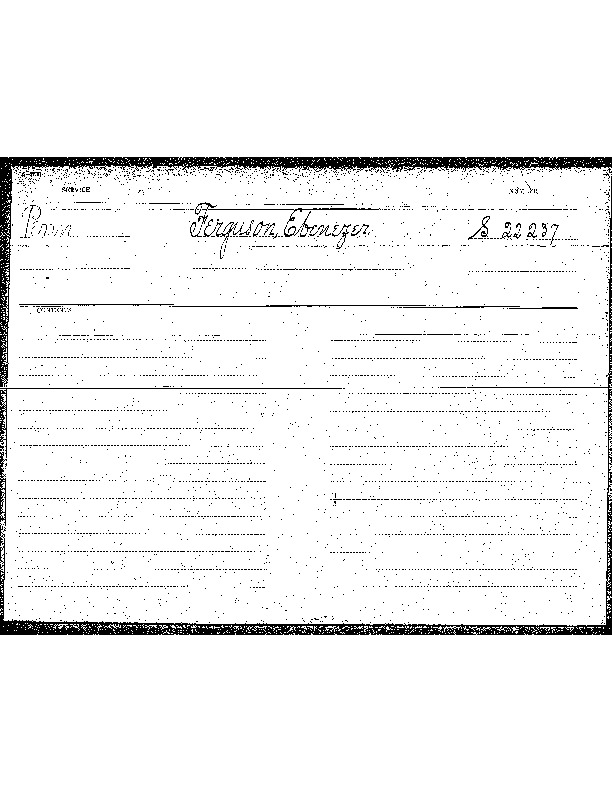 SERVICE
Penn Ferguson, Ebenezer S 22237
CONTENTS